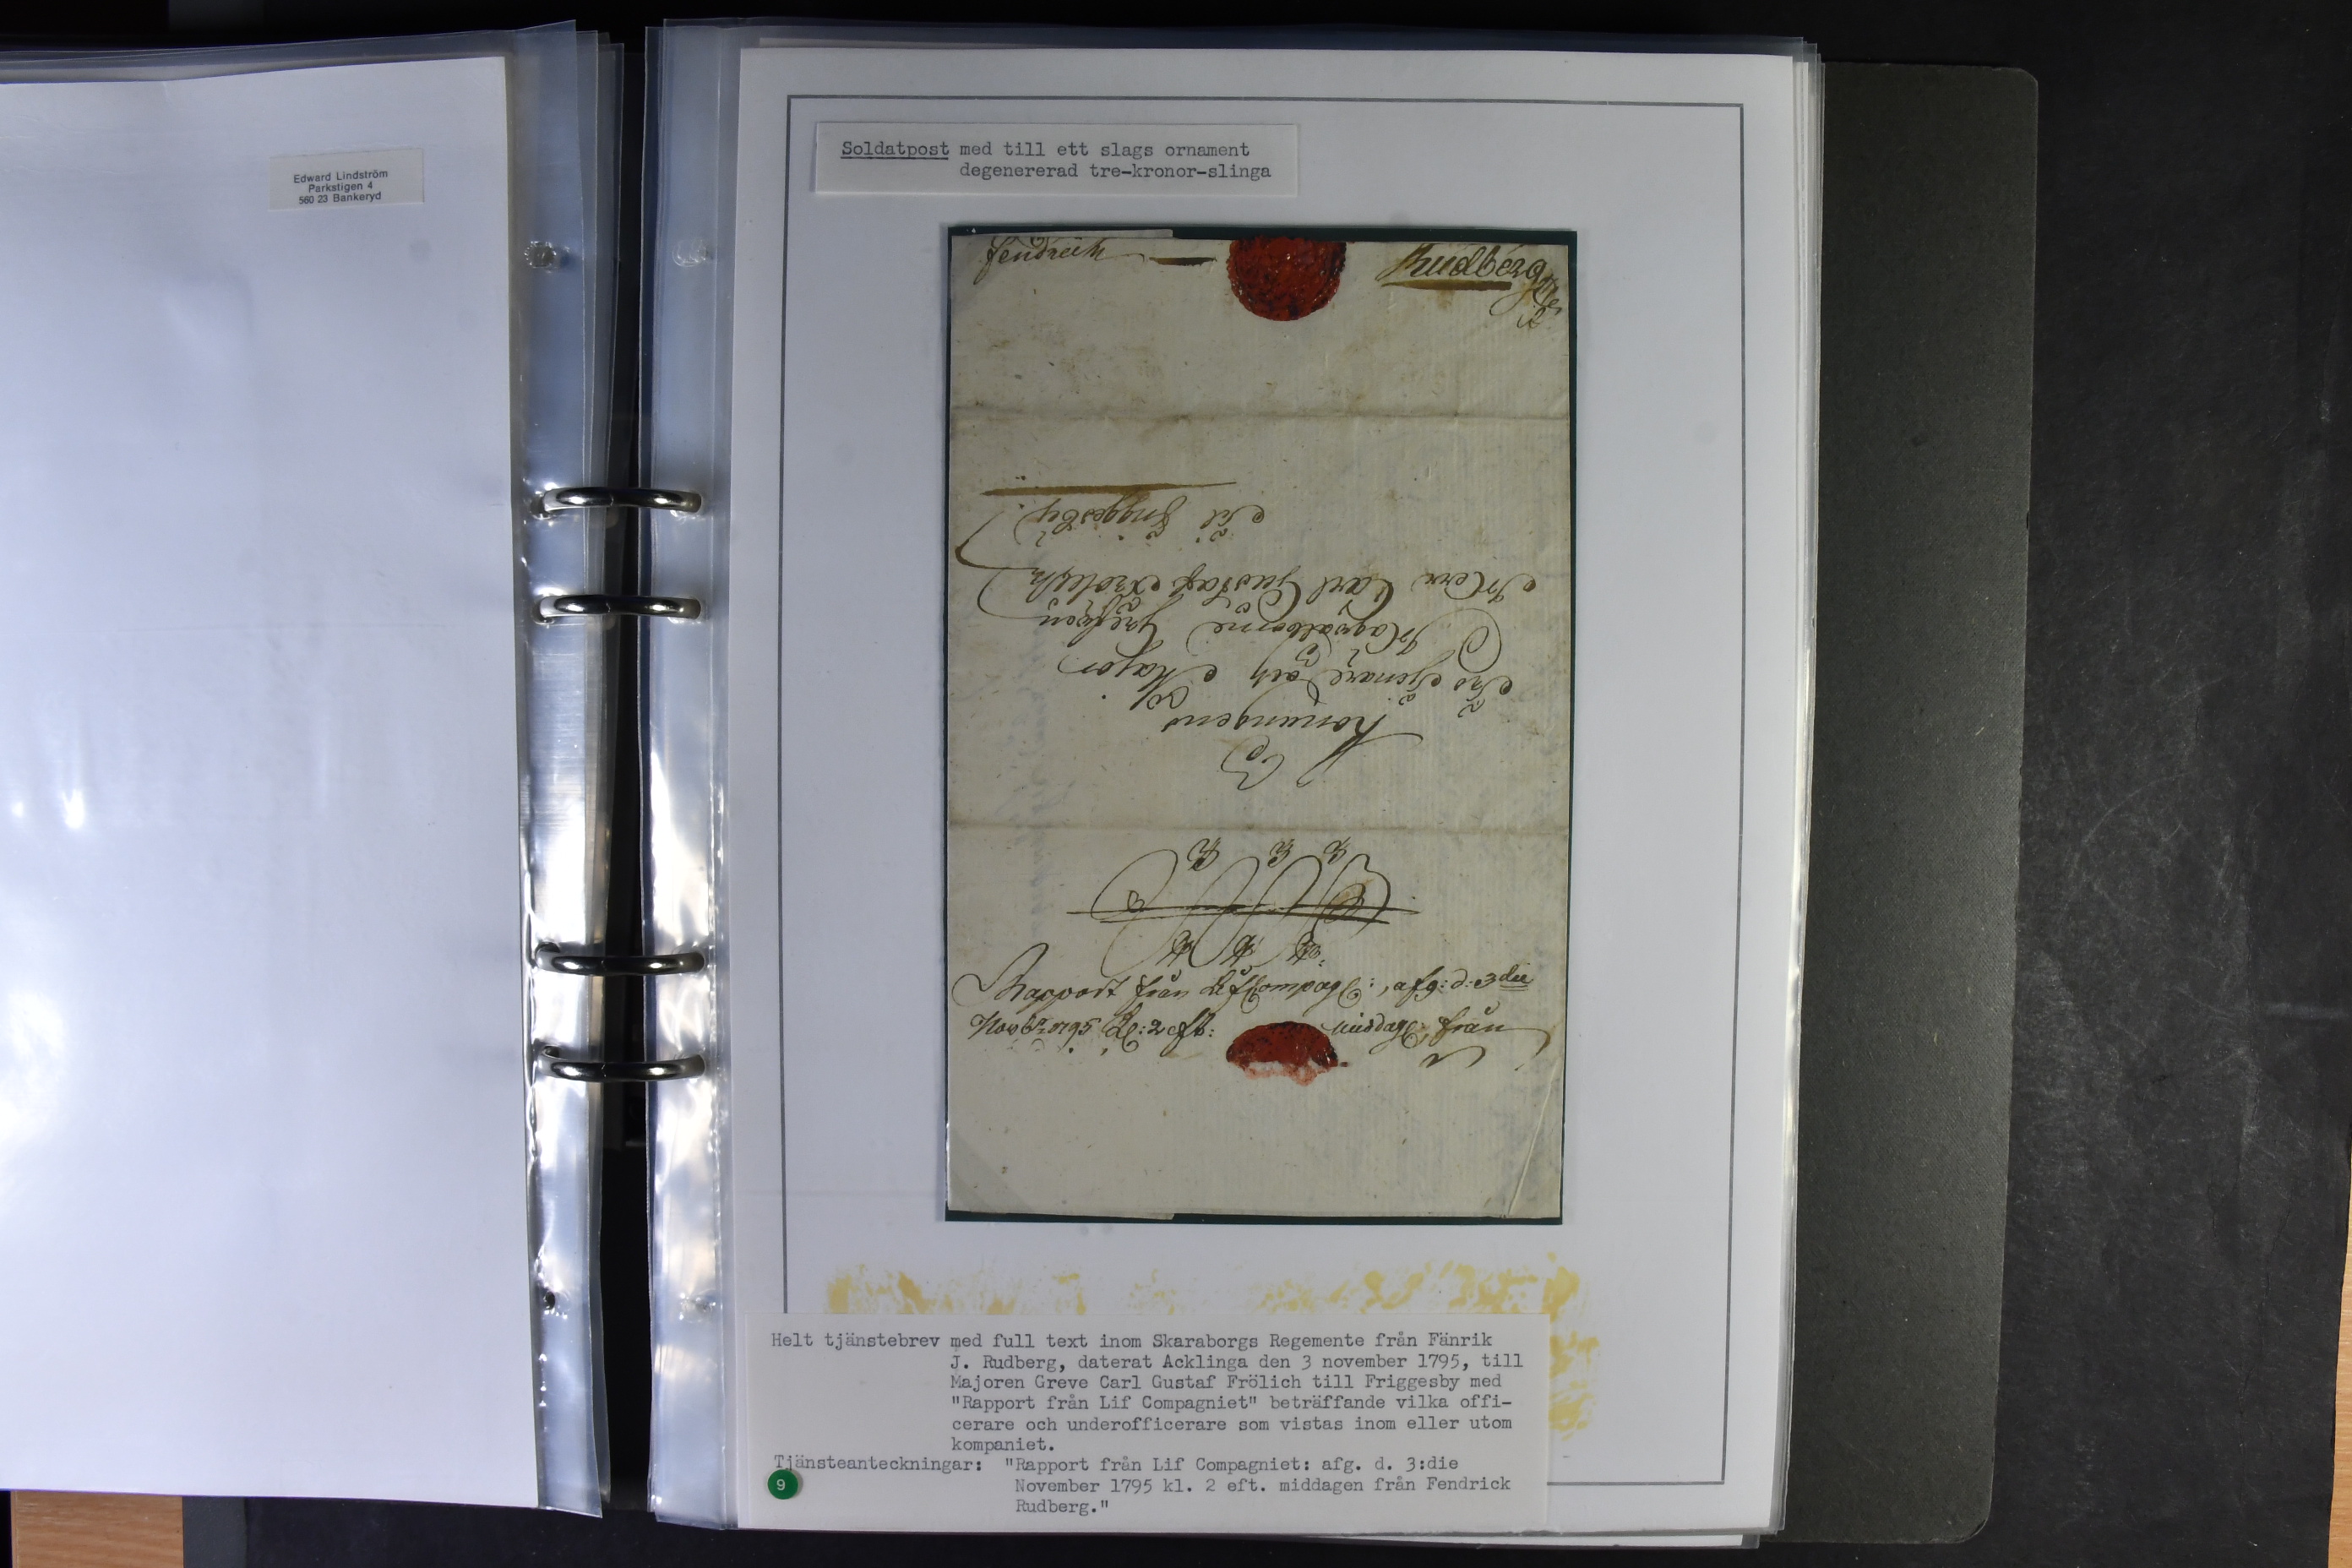 Edward Lindström
Parkstigen 4
560 23 Bankeryd
Soldatpost med till ett slags ornament
degenererad tre-kronor-slinga
fendrich Rudberg
Konungens
Tro Tjenare och Major
Högwälborne Grefwen
Herr Carl Gustaf Frölich
Til Friggesby
Rapport från Lif Compag: afg: d: 3die
Novbr 1795 Kl: 2 eft: middag: från
Helt tjänstebrev med full text inom Skaraborgs Regemente från Fänrik
J. Rudberg, daterat Acklinga den 3 november 1795, till
Majoren Greve Carl Gustaf Frölich till Friggesby med
"Rapport från Lif Compagniet" beträffande vilka offi-
cerare och underofficerare som vistas inom eller utom
kompaniet.
Tjänsteanteckningar: "Rapport från Lif Compagniet: afg. d. 3:die
November 1795 kl. 2 eft. middagen från Fendrick
Rudberg."
9